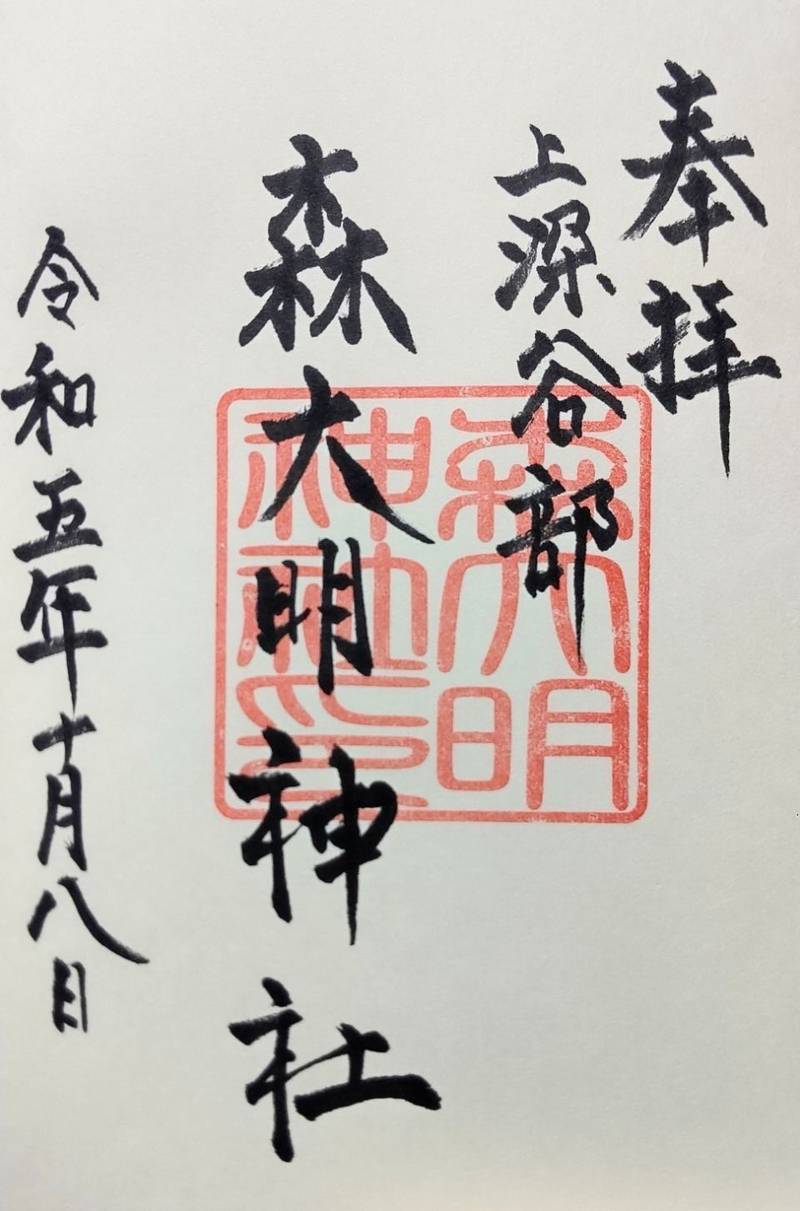 奉拝
上深谷部
森大明神社
令和五年十月八日
森大明
神社印